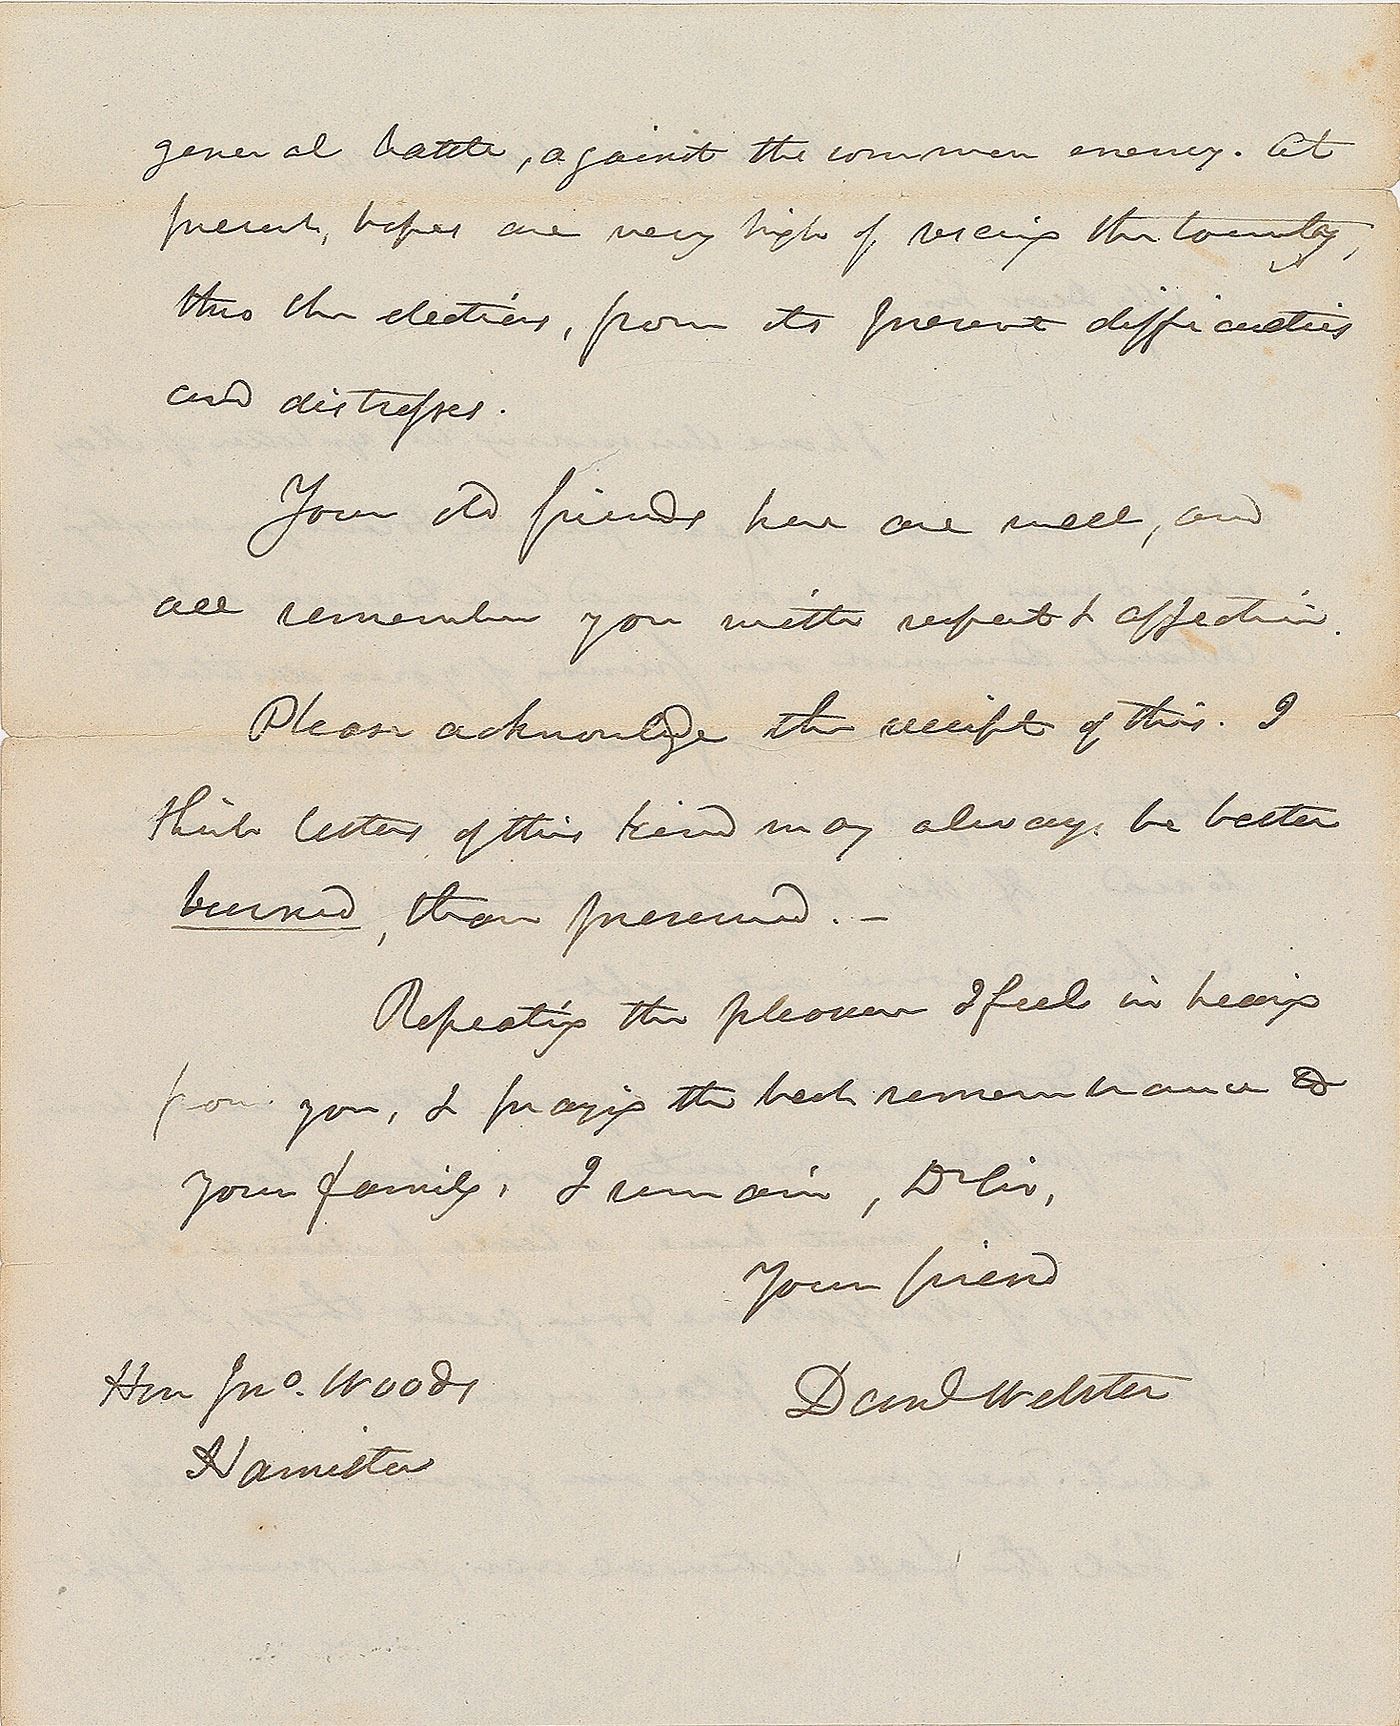 general battle, against the common enemy. At
present, hopes are very high of rescuing the Country,
thro the elections, from its present difficulties
and distresses.
Your old friends here are well, and
all remember you with respect & affection.
Please acknowledge the receipt of this. I
think letters of this kind may always be better
burned, than preserved. —
Repeating the pleasure I feel in hearing
from you, & praying the best remembrance to
your family, I remain, Dr Sir,
Your friend
Danl Webster
Hon Jno. Woods
Hamilton